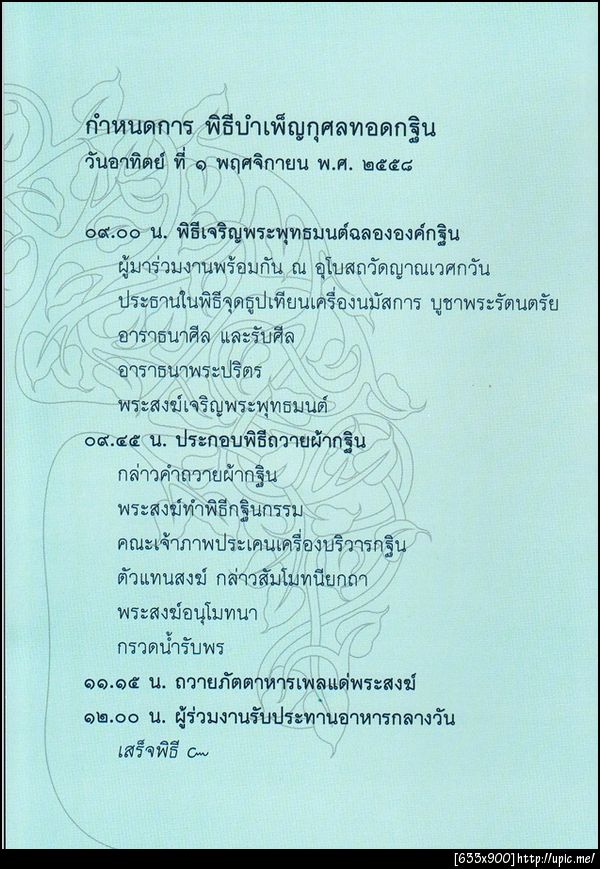 กำหนดการ พิธีบำเพ็ญกุศลทอดกฐิน
วันอาทิตย์ ที่ ๑ พฤศจิกายน พ.ศ. ๒๕๕๘
๐๙.๐๐ น. พิธีเจริญพระพุทธมนต์ฉลององค์กฐิน
ผู้มาร่วมงานพร้อมกัน ณ อุโบสถวัดญาณเวศกวัน
ประธานในพิธีจุดธูปเทียนเครื่องนมัสการ บูชาพระรัตนตรัย
อาราธนาศีล และรับศีล
อาราธนาพระปริตร
พระสงฆ์เจริญพระพุทธมนต์
๐๙.๔๕ น. ประกอบพิธีถวายผ้ากฐิน
กล่าวคำถวายผ้ากฐิน
พระสงฆ์ทำพิธีกฐินกรรม
คณะเจ้าภาพประเคนเครื่องบริวารกฐิน
ตัวแทนสงฆ์ กล่าวสัมโมทนียกถา
พระสงฆ์อนุโมทนา
กรวดน้ำรับพร
๑๑.๑๕ น. ถวายภัตตาหารเพลแด่พระสงฆ์
๑๒.๐๐ น. ผู้ร่วมงานรับประทานอาหารกลางวัน
เสร็จพิธี ๛
[633x900]http://upic.me/